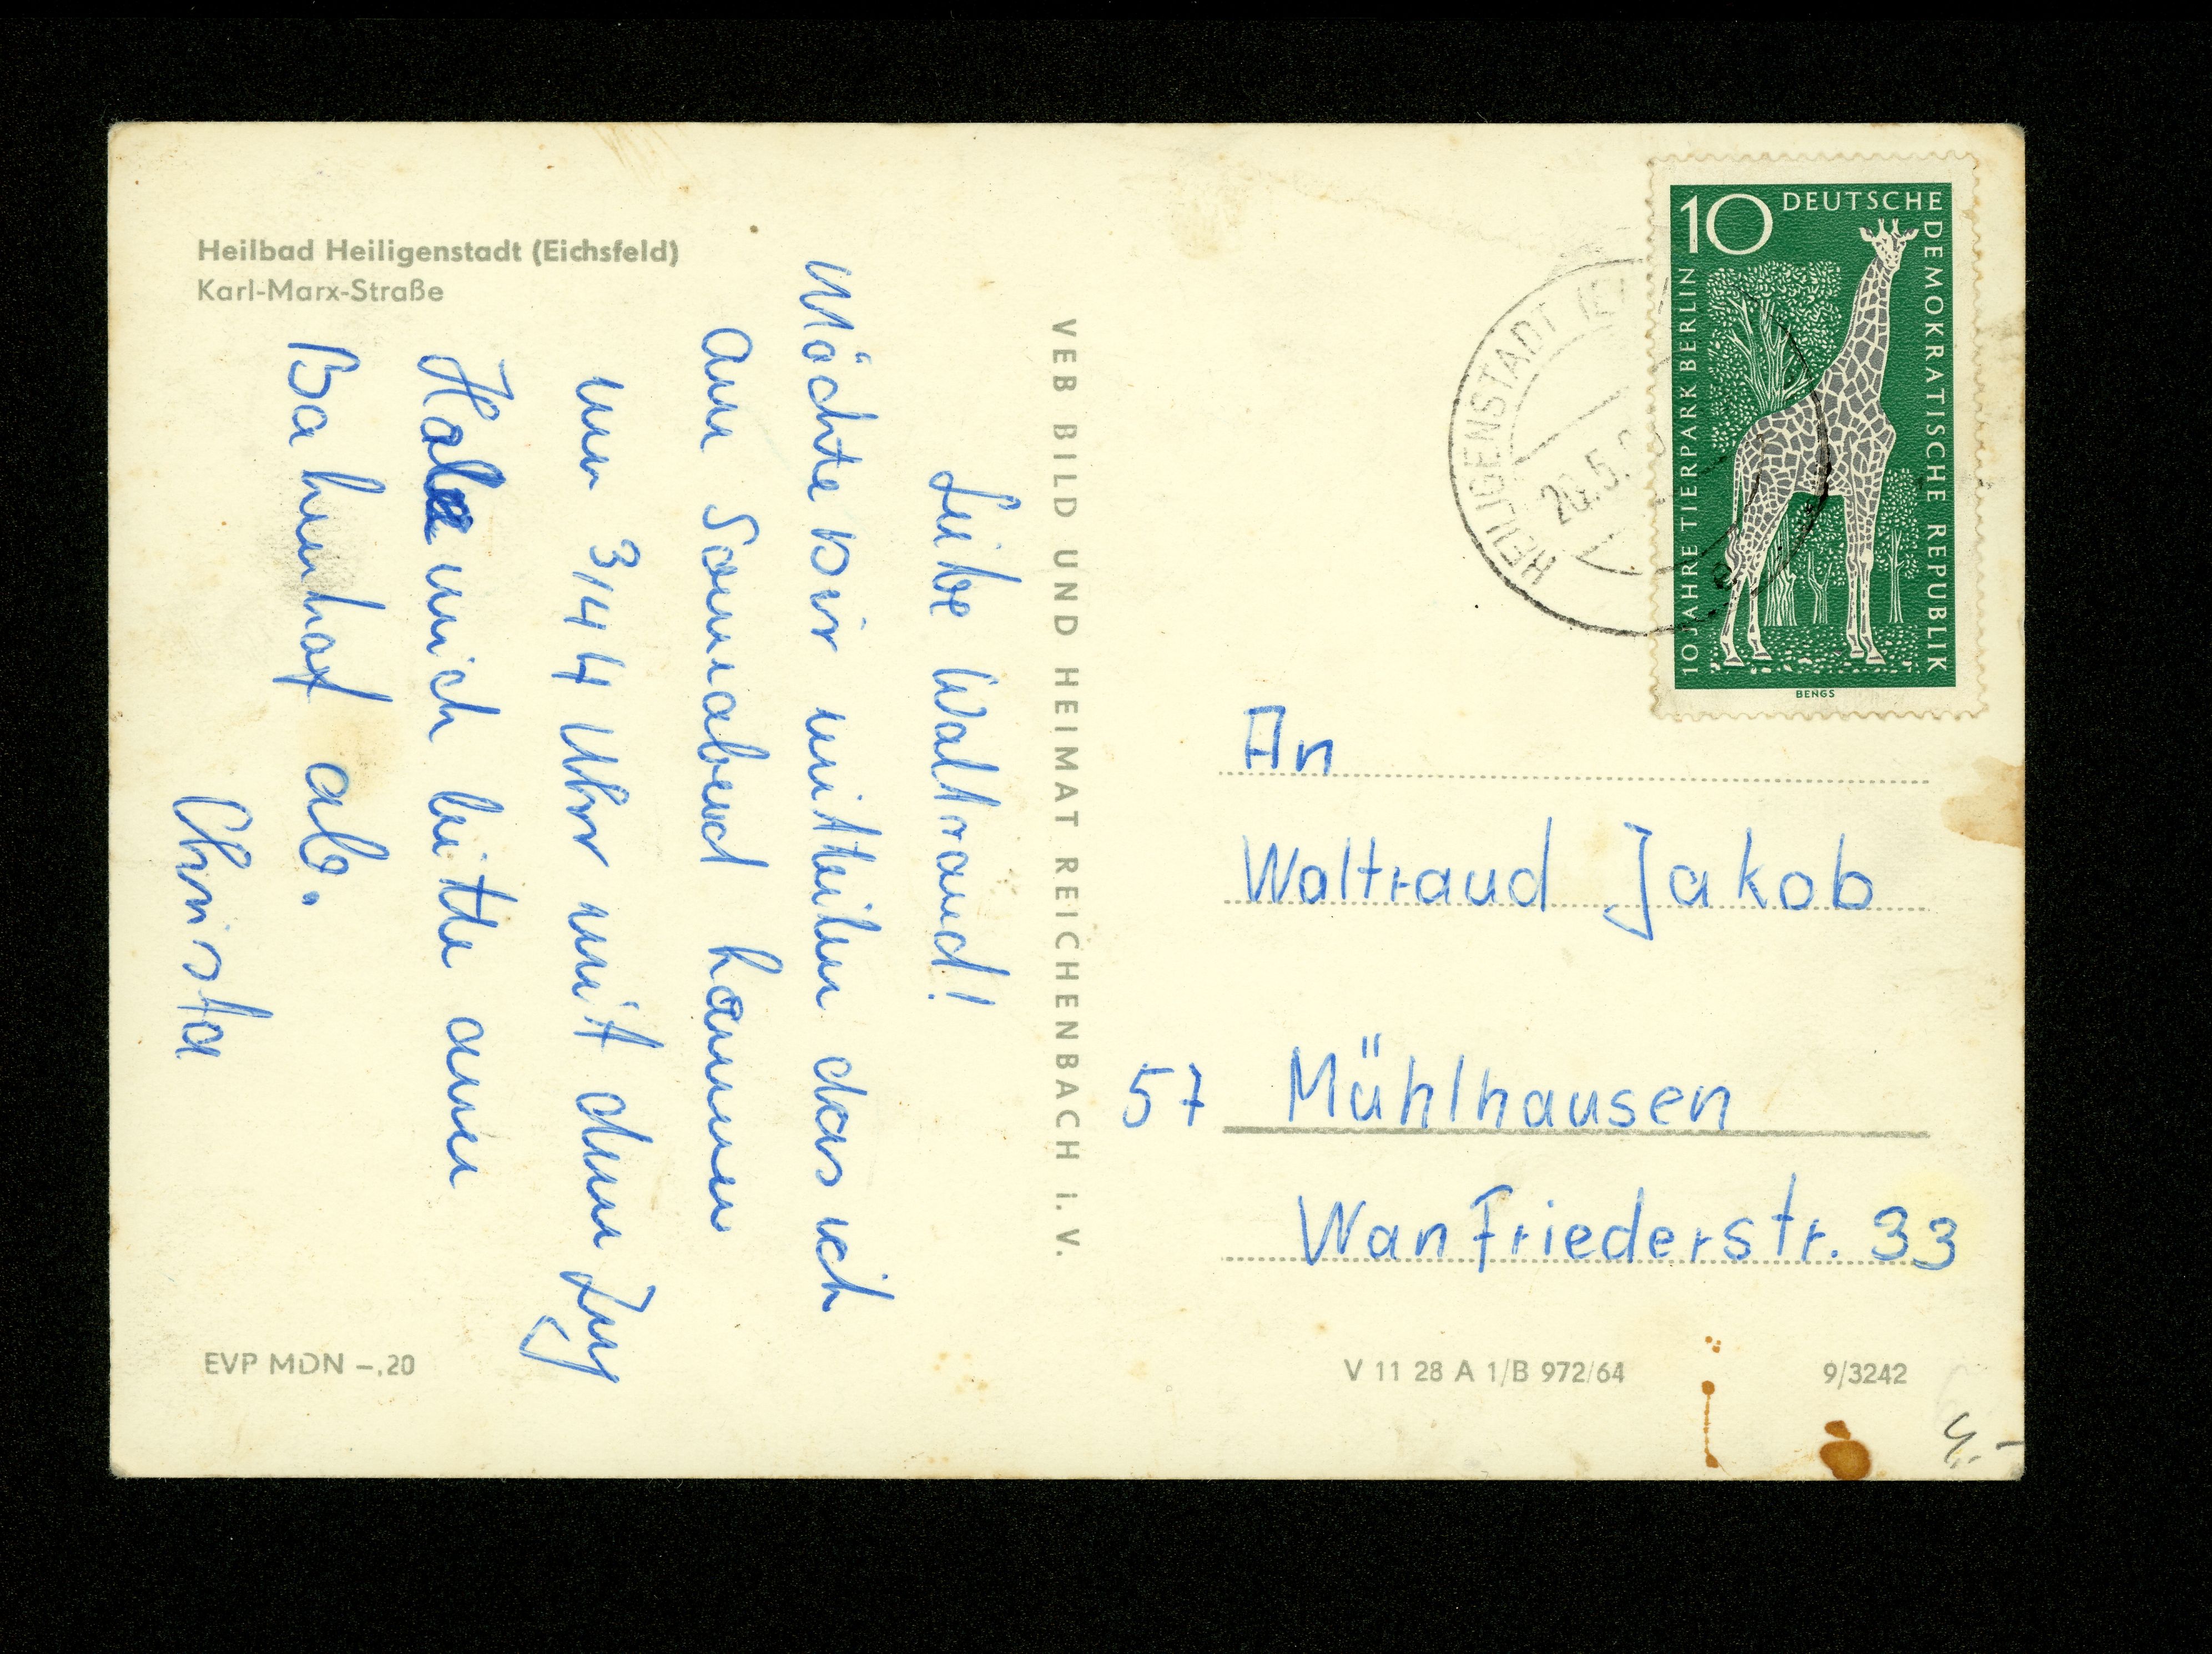 Heilbad Heiligenstadt (Eichsfeld)
Karl-Marx-Straße
Liebe Waltraud!
Möchte Dir mitteilen das ich
am Sonnabend komme
um 3/4 4 Uhr mit dem Zug
Hole mich bitte am
Bahnhof ab.
Christa
EVP MDN –,20
VEB BILD UND HEIMAT REICHENBACH I. V.
HEILIGENSTADT
10 DEUTSCHE
DEMOKRATISCHE REPUBLIK
10 JAHRE TIERPARK BERLIN
BENGS
An
Waltraud Jakob
57 Mühlhausen
Wanfriederstr. 33
V 11 28 A 1/B 972/64
9/3242
4.-